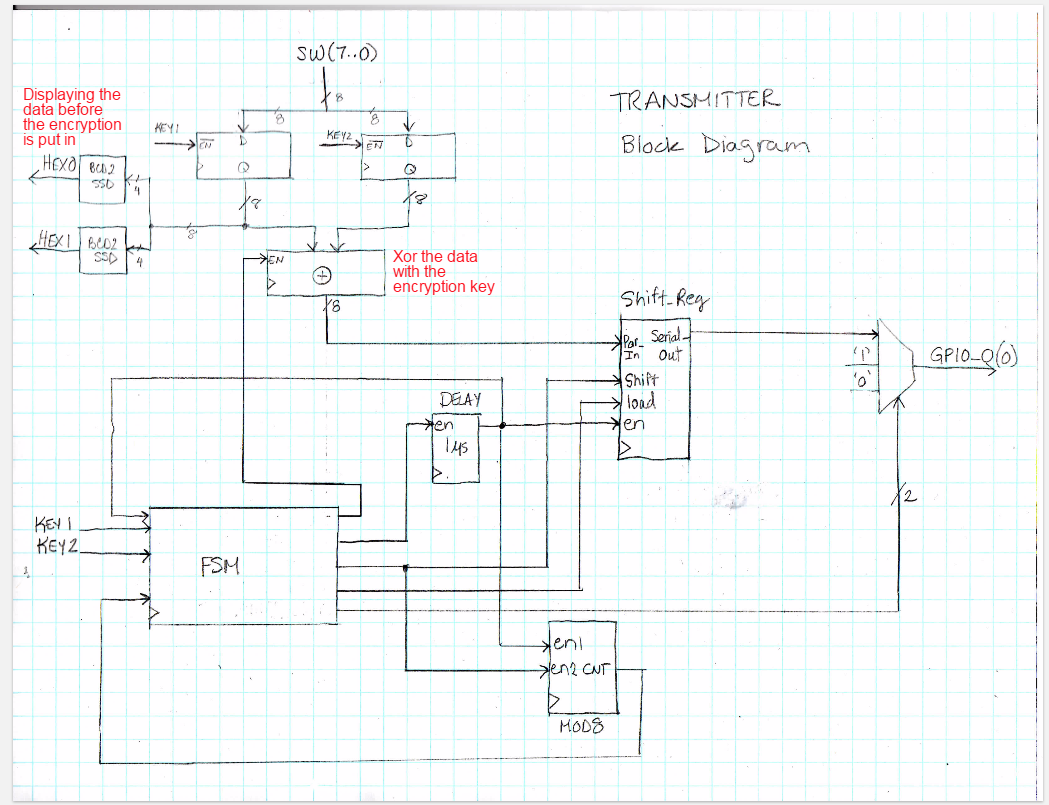 SW(7..0)
8
8
8
TRANSMITTER
Block Diagram
Displaying the
data before
the encryption
is put in
KEY1
EN
D
Q
KEY2
EN
D
Q
HEX0
BCD2
SSD
4
8
8
HEX1
BCD2
SSD
4
8
EN
+
8
Xor the data
with the
encryption key
Shift_Reg
Par_
In
Serial_
Out
Shift
load
en
'1'
'0'
GPIO_0(0)
DELAY
en
1µs
2
KEY1
KEY2
FSM
en1
en2 CNT
MOD8